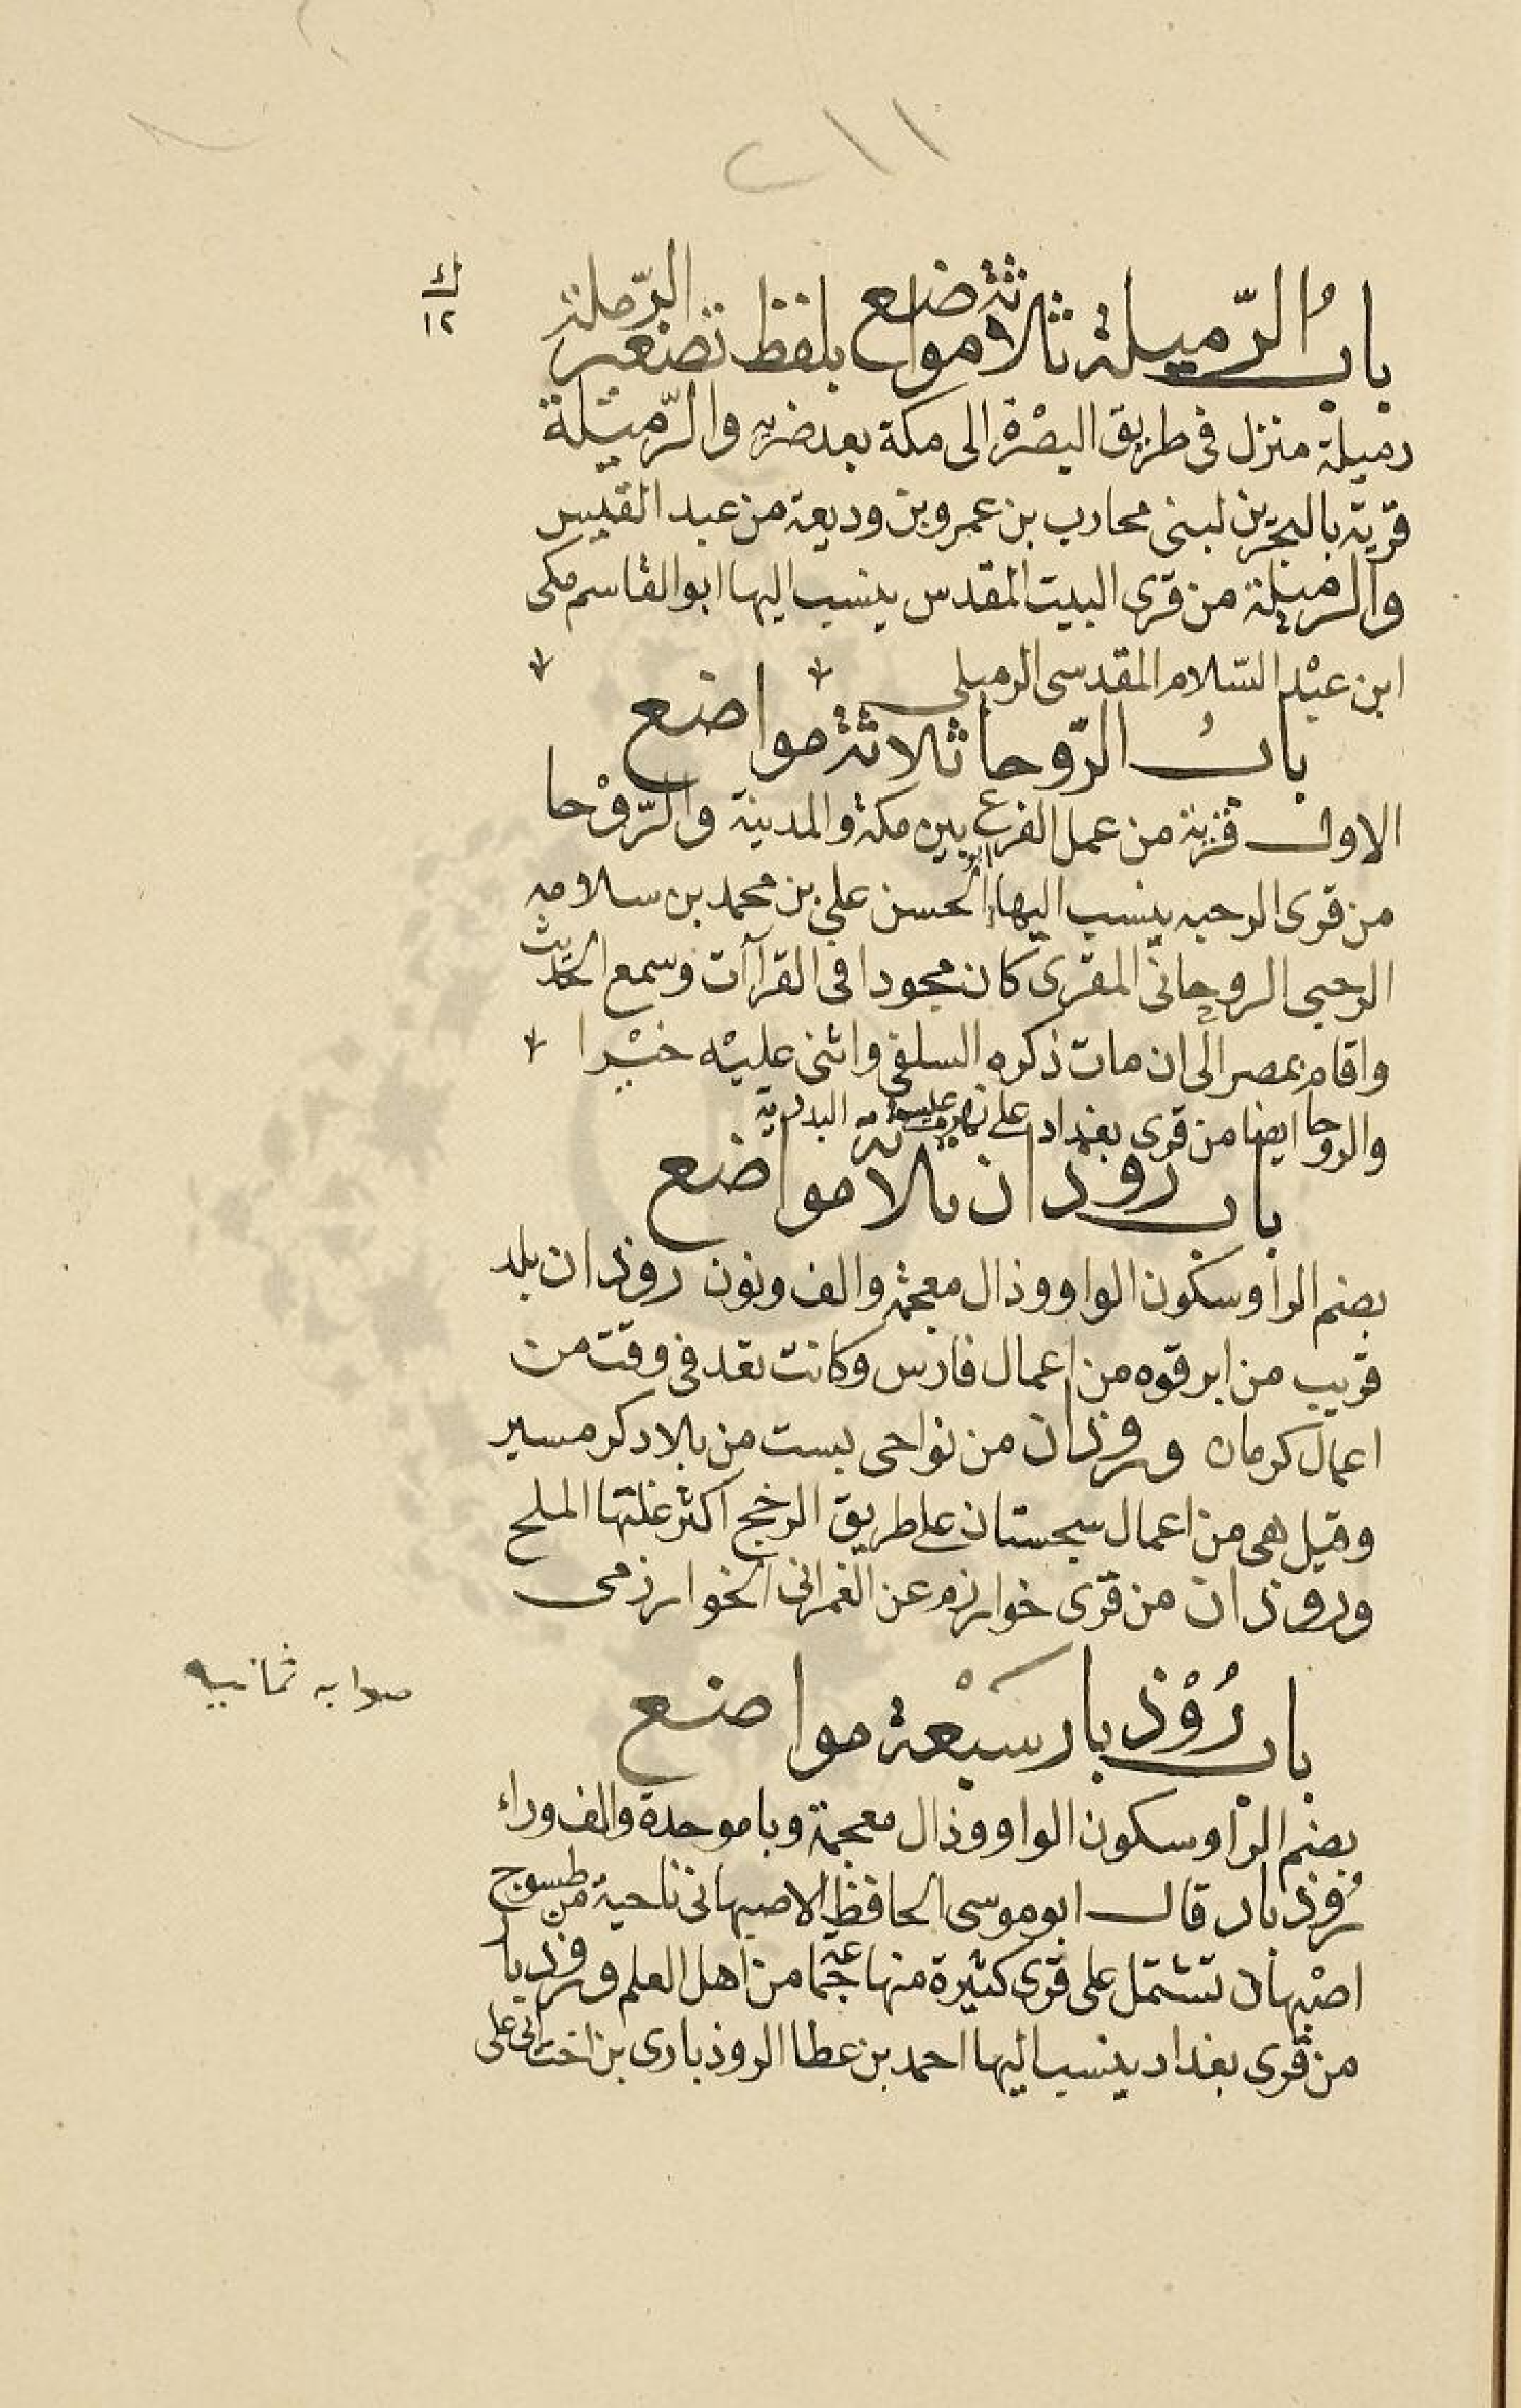 ٢١١
ك
١٢
بابُ الرّميلة ثلاثة مواضع بلفظ تصغير الرّملة
رميلة منزل فى طريق البصْرة الى مكة بعد ضريه والرّميْلة
قرية بالبحرين لبنى محارب بن عمرو بن وديعة من عبد القيس
والرميلة من قرى البيت المقدس ينسب اليها ابو القاسم مكى
ابن عبْد السّلام المقدسى الرميلى
بابُ الرّوحا ثلاثة مواضع
الاول قرية من عمل الفرع بين مكة والمدينة والرّوْحا
من قرى الرحبه ينسب اليها ابو الحسن علي بن محمد بن سلامه
الرحبى الروحانّى المقرى كان مجودا فى القراآت وسمع الحديث
واقام بمصر الى ان مات ذكره السلفى واثنى عليْه خيْرا
والروحا ايضا من قرى بغداد على نهر عيسى البدرية
باب روذان ثلاثة مواضع
بضم الرا وسكون الواو وذال معجمة والف ونون روذان بلد
قريب من ابرقوه من اعمال فارس وكانت تعد فى وقت من
اعمال كرمان وروذان من نواحى بست من بلاد كرمسير
وقيل هى من اعمال سجستان على طريق الرخج اكثر غلتها الملح
وروذان من قرى خوارزم عن العمرانى الخوارزمى
باب رُوْذبار سَبْعة مواضع
صوابه ثمانيه
بضم الرا وسكون الواو وذال معجمة وبا موحدة والف وراء
رُوذبار قال ابو موسى الحافظ الاصبهانى ناحية من طسوج
اصْبهان تشتمل على قرى كثيرة منها جماعة من اهل العلم وروذبار
من قرى بغداد ينسب اليها احمد بن عطا الروذبارى بن اخت ابى على